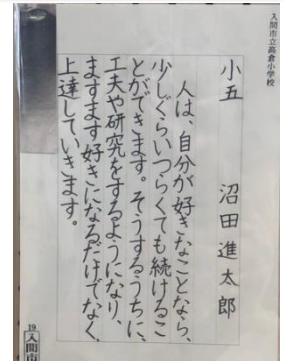 入間市立高倉小学校
小五　沼田進太郎
人は、自分が好きなことなら、
少しぐらいつらくても続けるこ
とができます。そうするうちに、
工夫や研究をするようになり、
ますます好きになるだけでなく、
上達していきます。
19
入間市